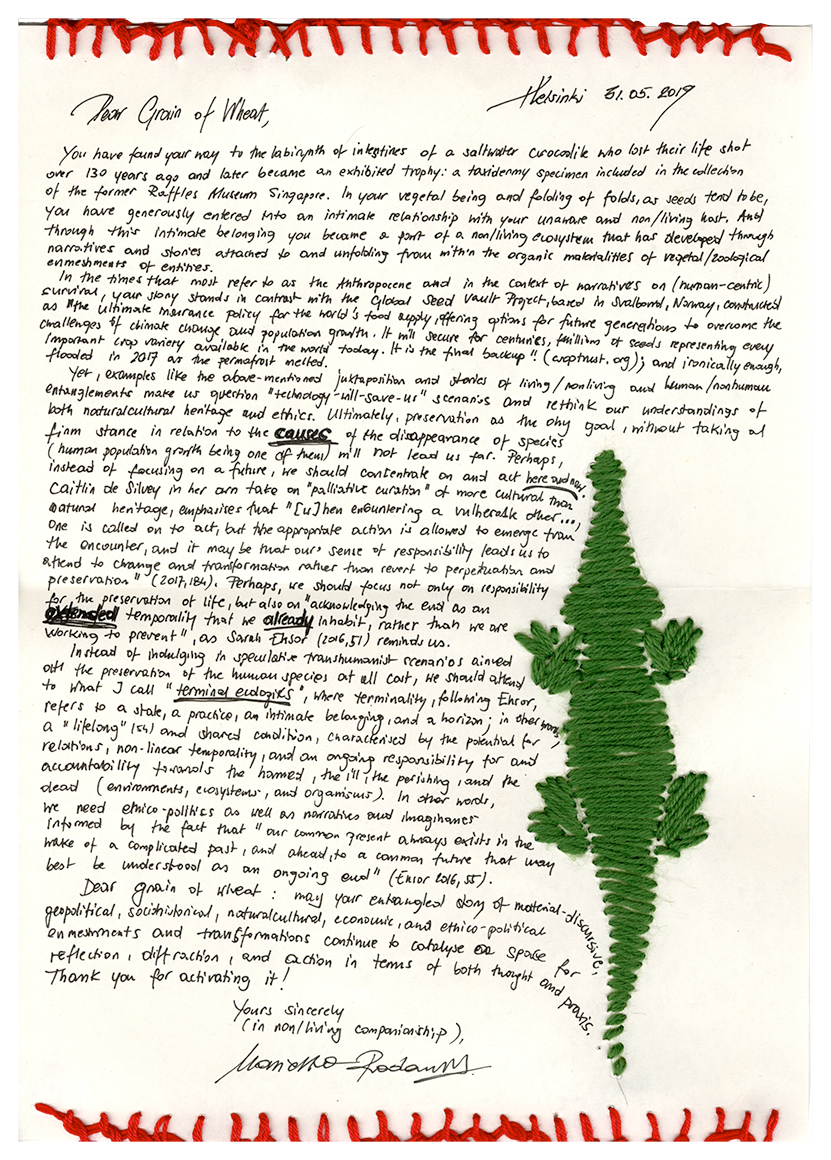 Helsinki 31.05.2019
Dear Grain of Wheat,
You have found your way to the labirynth of intestines of a saltwater crocodile who lost their life shot
over 130 years ago and later became an exhibited trophy: a taxidermy specimen included in the collection
of the former Raffles Museum Singapore. In your vegetal being and folding of folds, as seeds tend to be,
you have generously entered into an intimate relationship with your unaware and non/living host. And
through this intimate belonging you became a part of a non/living ecosystem that has developed through
narratives and stories attached to and unfolding from within the organic materialities of vegetal/zoological
enmeshments of entities.
In the times that most refer to as the Anthropocene and in the context of narratives on (human-centric)
survival, your story stands in contrast with the Global Seed Vault Project, based in Svalbard, Norway, constructed
as "the ultimate insurance policy for the world's food supply, offering options for future generations to overcome the
challenges of climate change and population growth. It will secure for centuries, millions of seeds representing every
important crop variety available in the world today. It is the final backup" (croptrust.org); and ironically enough,
flooded in 2017 as the permafrost melted.
Yet, examples like the above-mentioned juxtaposition and stories of living/nonliving and human/nonhuman
entanglements make us question "technology-will-save-us" scenarios and rethink our understandings of
both naturalcultural heritage and ethics. Ultimately, preservation as the only goal, without taking a
firm stance in relation to the causes of the disappearance of species
(human population growth being one of them) will not lead us far. Perhaps,
instead of focusing on a future, we should concentrate on and act here and now.
Caitlin de Silvey in her own take on "palliative curation" of more cultural than
natural heritage, emphasises that "[w]hen encountering a vulnerable other...,
one is called on to act, but the appropriate action is allowed to emerge from
the encounter, and it may be that our sense of responsibility leads us to
attend to change and transformation rather than revert to perpetuation and
preservation" (2017, 184). Perhaps, we should focus not only on responsibility
for the preservation of life, but also on "acknowledging the end as an
extended temporality that we already inhabit, rather than we are
working to prevent", as Sarah Ensor (2016, 51) reminds us.
Instead of indulging in speculative transhumanist scenarios aimed
at the preservation of the human species at all cost, we should attend
to what I call "terminal ecologies", where terminality, following Ensor,
refers to a state, a practice, an intimate belonging, and a horizon; in other words,
a "lifelong" (54) and shared condition, characterised by the potential for
relations, non-linear temporality, and an ongoing responsibility for and
accountability towards the harmed, the ill, the perishing, and the
dead (environments, ecosystems, and organisms). In other words,
we need ethico-politics as well as narratives and imaginaries
informed by the fact that "our common present always exists in the
wake of a complicated past, and ahead, to a common future that may
best be understood as an ongoing end" (Ensor 2016, 55).
Dear grain of wheat: may your entangled story of material-discursive,
geopolitical, sociohistorical, naturalcultural, economic, and ethico-political
enmeshments and transformations continue to catalyse a space for
reflection, diffraction, and action in terms of both thought and praxis.
Thank you for activating it!
Yours sincerely
(in non/living companionship),